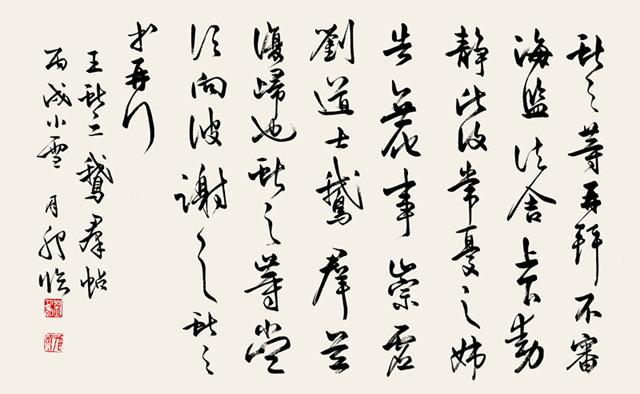 獻之等再拜不審
海鹽諸舍上下動
靜比復常憂之姊
告無他事崇虛
劉道士鵝群並
復歸也獻之等當
須向彼謝之獻之
等再拜
王獻之鵝群帖
丙戌小雪月臨